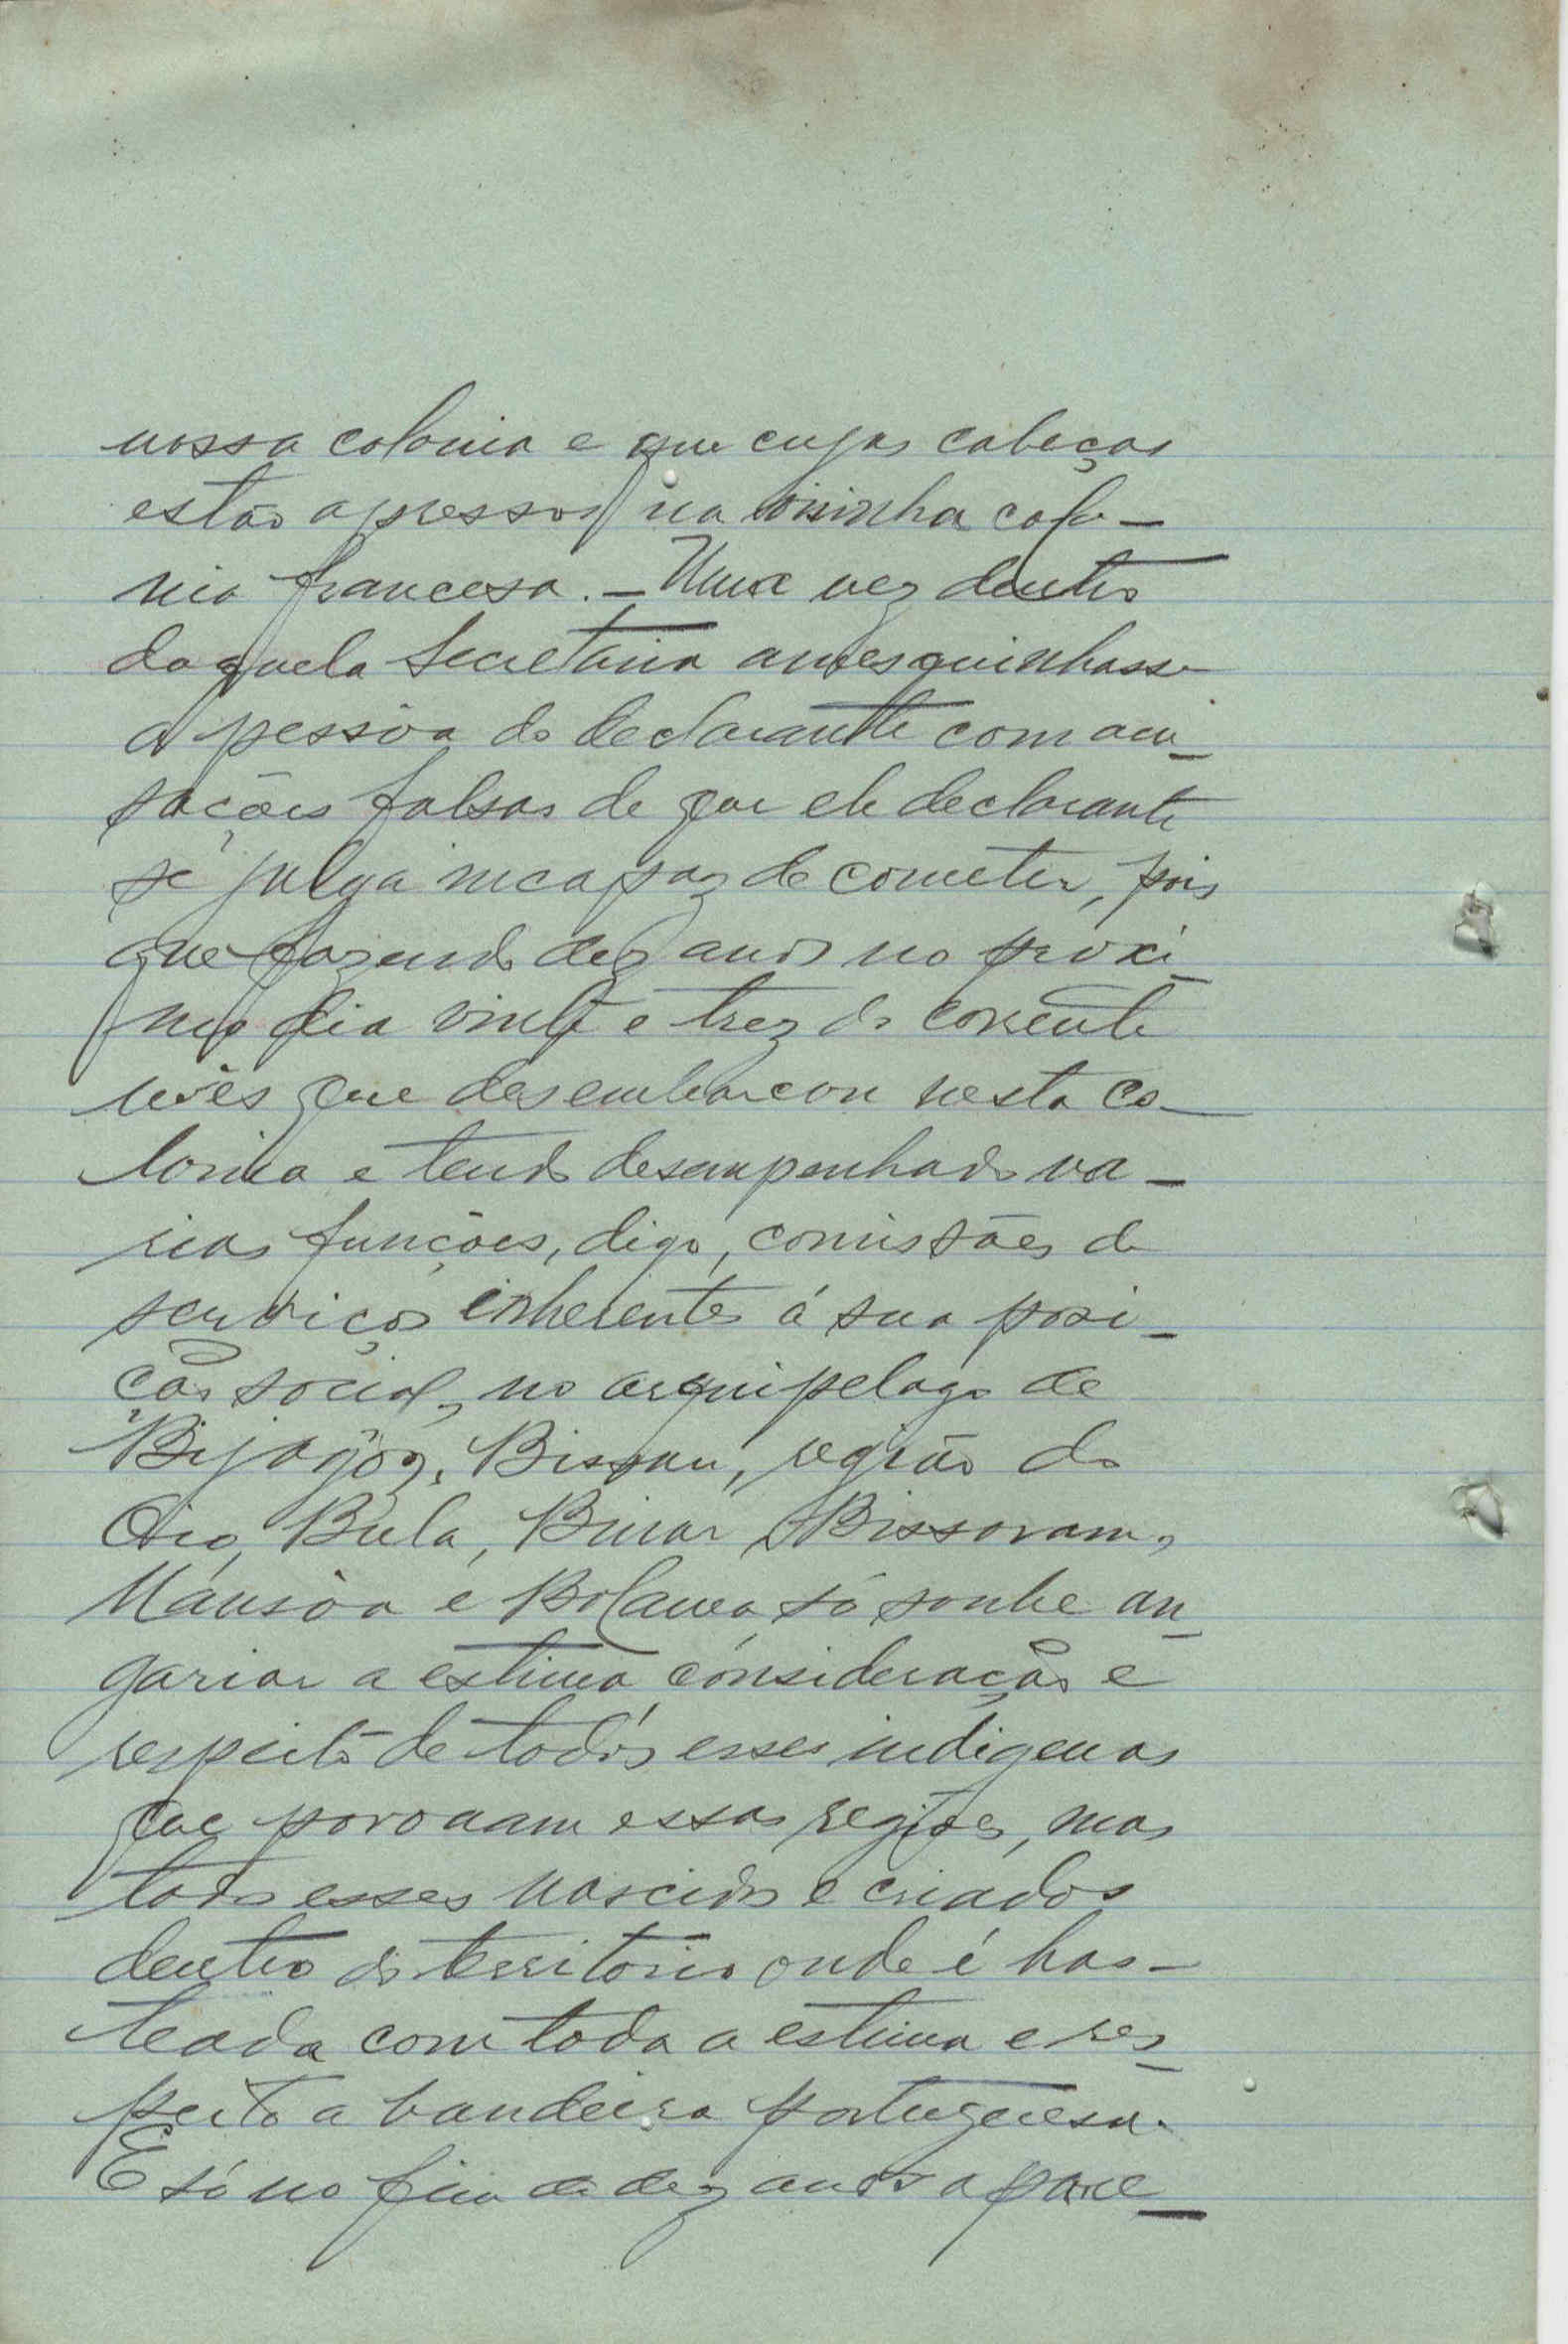 nossa colonia e que cujas cabeças
estão a pressos na visinha colo-
nia francesa. - Uma vez dentro
daquela Secretaria amesquinhasse
a pessôa do declarante com acu-
sações falsas de que ele declarante
se julga incapaz de cometer, pois
que fazendo dez anos no proxi-
mo dia vinte e trez do corrente
mês que desembarcou nesta co-
lonia e tendo desempenhado va-
rias funções, digo, comissões de
serviços inherentes á sua posi-
ção social, no arquipelago de
Bijagóz, Bissau, região do
Oio, Bula, Binar, Bissoram,
Mansôa e só soube an-
gariar a estima consideração e
respeito de todos esses indigenas
que povoaam essas regiões, mas
todos esses nascidos e criados
dentro do territorio onde é has-
teada com toda a estima e res-
peito a bandeira portuguesa.
E só no fim de dez anos apare-